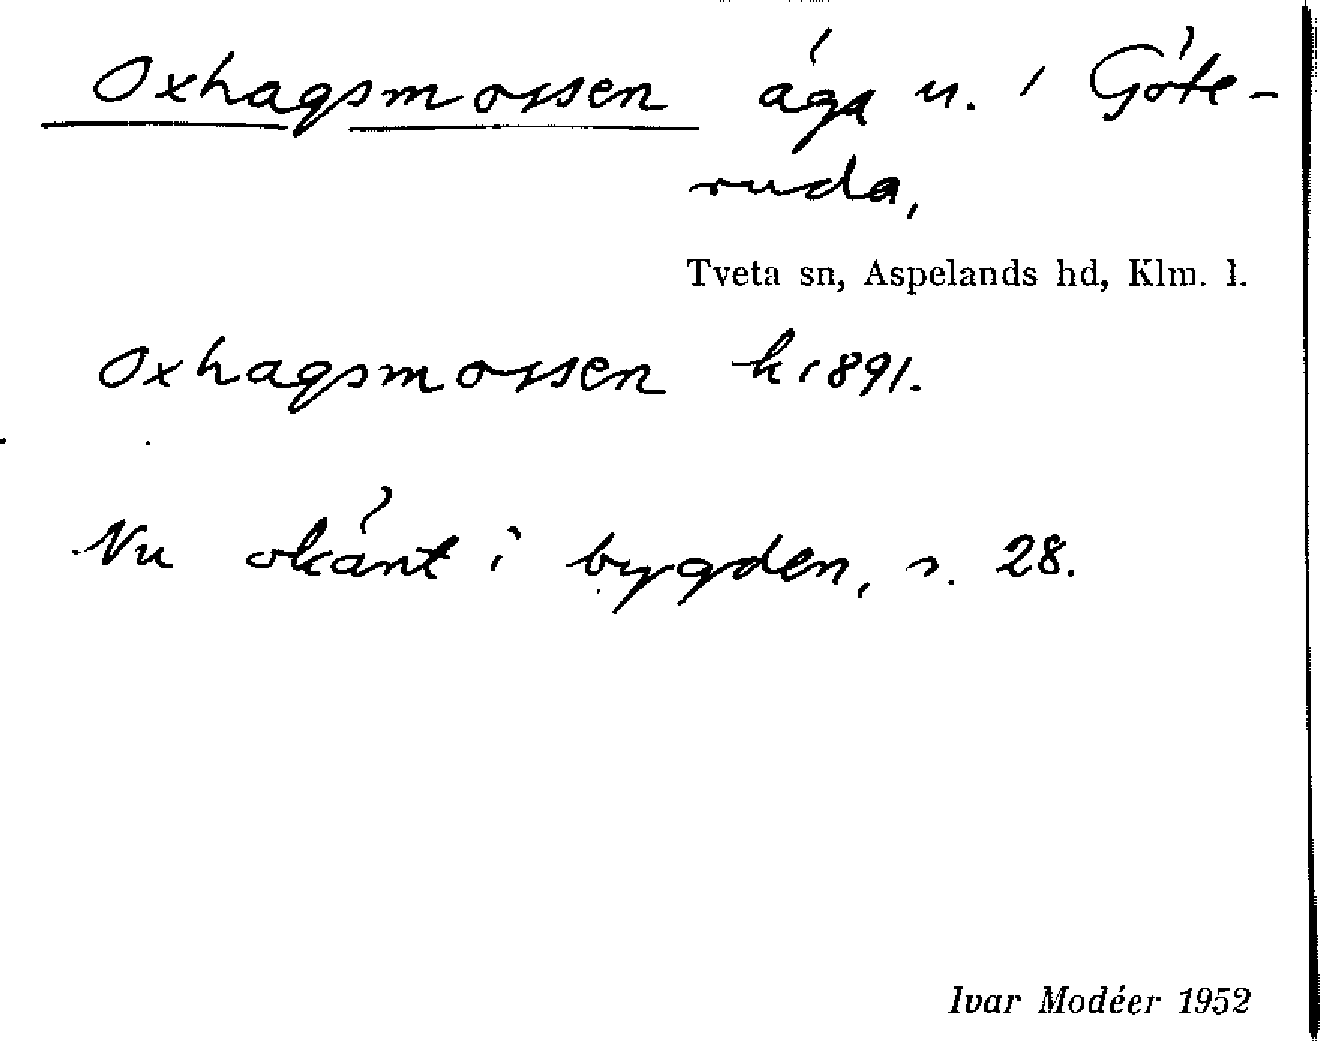 Oxhagsmossen ägs n. i Göte-
ruda,
Tveta sn, Aspelands hd, Klm. l.
Oxhagsmossen k 1891.
Nu okänt i bygden, s. 28.
Ivar Modéer 1952